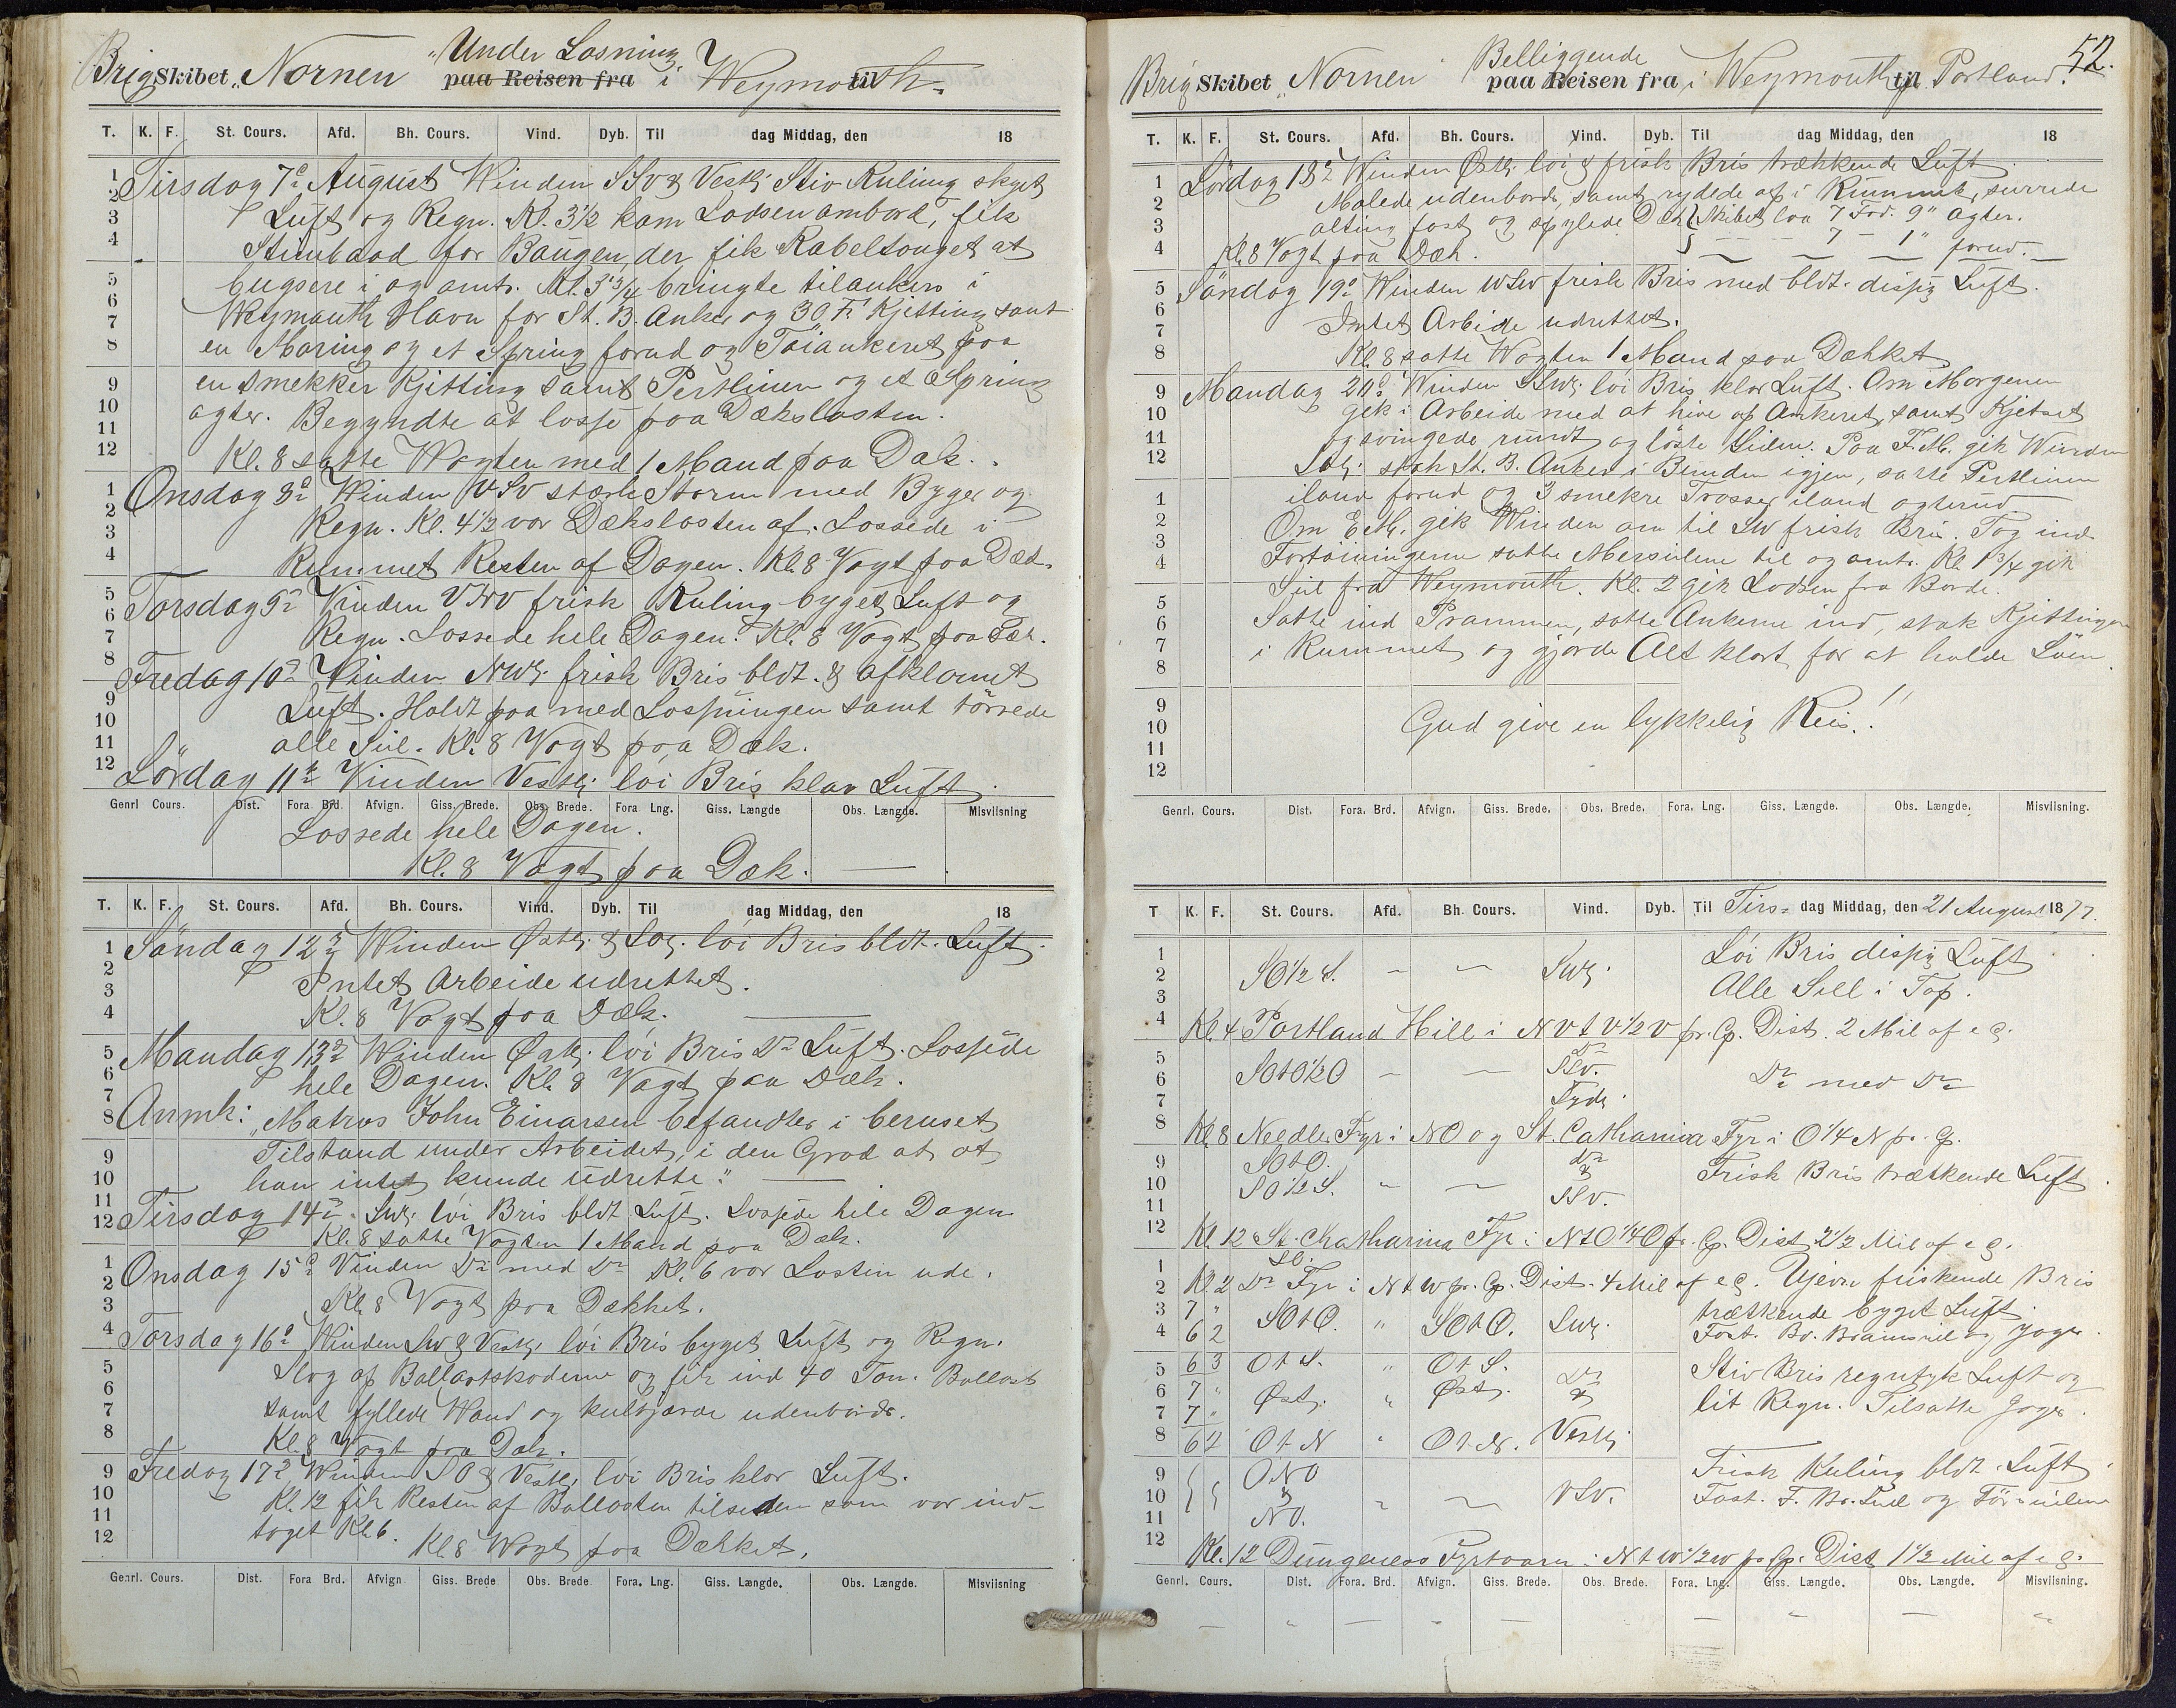 Brig Skibet „Nornen" Under Losning paa Reisen fra i Weymouth til
T. K. F. St. Cours. Afd. Bh. Cours. Vind. Dyb. Til dag Middag, den 18
Tirsdag 7de August Winden SSv & Vestl. Stiv Kuling skyet
Luft og Regn. Kl. 3 1/2 kom Lodsen ambord, fik
Stimbaad for Baugen, der fik Kabeltouget at
bugsere i og amts. Kl. 3 3/4 bringte tilankers i
Weymouth Havn for St. B. Anker og 30 F. Kjetting samt
en Moring og et Spring forud og Töiankeret paa
en smekker Kjitting samt Pertlinen og et Spring
agter. Begyndte at losse paa Dækslasten.
Kl. 8 satte Wagten med 1 Mand paa Dæk.
Onsdag 8de Winden VSV stærk Storm med Byger og
Regn. Kl. 4 1/2 var Dækslasten af. Lossede i
Rummet Resten af Dagen. Kl. 8 Vagt paa Dæk.
Torsdag 9de Vinden VNV frisk Kuling byget Luft og
Regn. Lossede hele Dagen. Kl. 8 Vagt paa Dæk.
Fredag 10de Vinden NWl. frisk Bris bldt. & afklaret
Luft. Holdt paa med Losningen samt törrede
alle Seil. Kl. 8 Vagt paa Dæk.
Lördag 11te Vinden Vestl. löi Bris klar Luft.
Genrl Cours. Dist. Fora Brd. Afvign. Giss. Brede. Obs. Brede. Fora Lng. Giss. Længde Obs. Længde. Misviisning
Lossede hele Dagen.
Kl. 8 Vagt paa Dæk.
T. K. F. St. Cours. Afd. Bh. Cours. Vind. Dyb. Til dag Middag, den 18
Söndag 12te Winden Østl. & SOl. löi Bris bldt. Luft.
Intet Arbeide udrettet.
Kl. 8 Vagt paa Dæk.
Mandag 13de Winden Østl. löi Bris Do Luft. Lossede
hele Dagen. Kl. 8 Vagt paa Dæk.
Anmk: „Matros John Einarsen befandtes i beruset
Tilstand under Arbeidet, i den Grad at at
han intet kunde udrette."
Tirsdag 14de SWl. löi Bris bldt Luft. Lossede hele Dagen
Kl. 8 satte Vagten 1 Mand paa Dæk.
Onsdag 15de Vinden Do med Do Kl. 6 var Lasten ude.
Kl. 8 Vagt paa Dækket.
Torsdag 16de Winden SW & Vestl. löi Bris byget Luft og Regn.
Slog op Ballastskoderne og fik ind 40 Ton. Ballast
samt fyllede Wand og kultjærede udenbords.
Kl. 8 Vagt paa Dæk.
Fredag 17de Winden SO & Vestl. löi Bris klar Luft.
Kl. 12 fik Resten af Ballasten tilsiden som var ind-
taget Kl. 6. Kl. 8 Wagt paa Dækket.
Genrl. Cours. Dist. Fora Brd. Afvign Giss. Brede Obs. Brede. Fora. Lng. Giss. Længde. Obs. Længde. Misviisning
52.
Brig Skibet „Nornen" Belliggende paa Reisen fra i Weymouth til Portland.
T. K. F. St. Cours. Afd. Bh. Cours. Vind. Dyb. Til dag Middag, den 18
Lördag 18de Winden Østl. löi & frisk Bris trækkende Luft
Malede udenbords, samt ryddede op i Rummet, surrede
alting fast og spylede Dæk. Skibet laa 7 Fod. 9" agter.
Kl. 8 Vagt paa Dæk. — — — 7 — 1" forud.
Söndag 19de Winden WSW frisk Bris med bldt. disig Luft.
Intet Arbeide udrettet.
Kl. 8 satte Wagten 1 Mand paa Dækket
Mandag 20de Winden SSWl. löi Bris klar Luft. Om Morgenen
gik i Arbeide med at hive op Ankeret, samt Kjetset
og svingede rundt og löste Seilene. Paa F.M. gik Winden
SOl. stak St. B. Anker i Bunden igjen, satte Pertlinen
iland forud og 3 smekre Trosser iland agterud
Om E.M. gik Winden om til SW frisk Bris. Tog ind
Fortöiningerne satte Mersseilene til og amts. Kl. 1 3/4 gik
Seil fra Weymouth. Kl. 2 gik Lodsen fra Borde.
Satte ind Prammen, satte Ankerne ind, stak Kjittingen
i Rummet og gjorde Alt klart for at holde Söen.
Gud give en lykkelig Reis!!
Genrl. Cours. Dist. Fora. Brd. Afvign. Giss. Brede. Obs. Brede. Fora. Lng. Giss. Længde. Obs. Længde. Misviisning
T K. F. St. Cours. Afd. Bh. Cours. Vind. Dyb. Til Tirs- dag Middag, den 21 August 1877.
SO 1/2 S. — — SWl. Löi Bris disig Luft
Alle Seil i Top.
Kl. 4 Portland Hill i NVtV 1/2 V pr. Cp. Dist. 2 Mil af e G.
SOtO 1/2 O — — SSv. Do med Do
Sydl.
Kl. 8 Needles Fyr i NO og St. Catharina Fyr i O 1/4 N pr. Cp.
SOtO. Do Frisk Bris trækkende Luft
SO 1/2 S. — — & SSv.
Kl. 12 St. Chatharina Fyr i NtO 1/4 O pr. Cp. Dist 2 1/2 Mil af e G.
Kl. 2 Do Fyr i NtW pr. Cp. Dist. 4 Mil af e G. Ujevn friskende Bris
7 " SOtO. " SOtO. SWl. trækkende byget Luft.
6 2 Fast. Bv. Bramseil og Jager.
6 3 OtS. " OtS. Do Stiv Bris regntyk Luft og
7 " Østl. " Østl. & lit Regn. Tilsatte Jager.
7 "
6 4 OtN " OtN. Vestl.
ONO Frisk Kuling bldt. Luft
& — — VSV. Fast. F. Br. Seil og
NO.
Kl. 12 Dungeness Fyrtaarn i NtW 1/2 W pr. Cp. Dist 1 1/2 Mil af e G.
Genrl. Cours. Dist. Fora. Brd. Afvign. Giss. Brede. Obs. Brede. Fora. Lng. Giss. Længde. Obs. Længde. Misviisning.